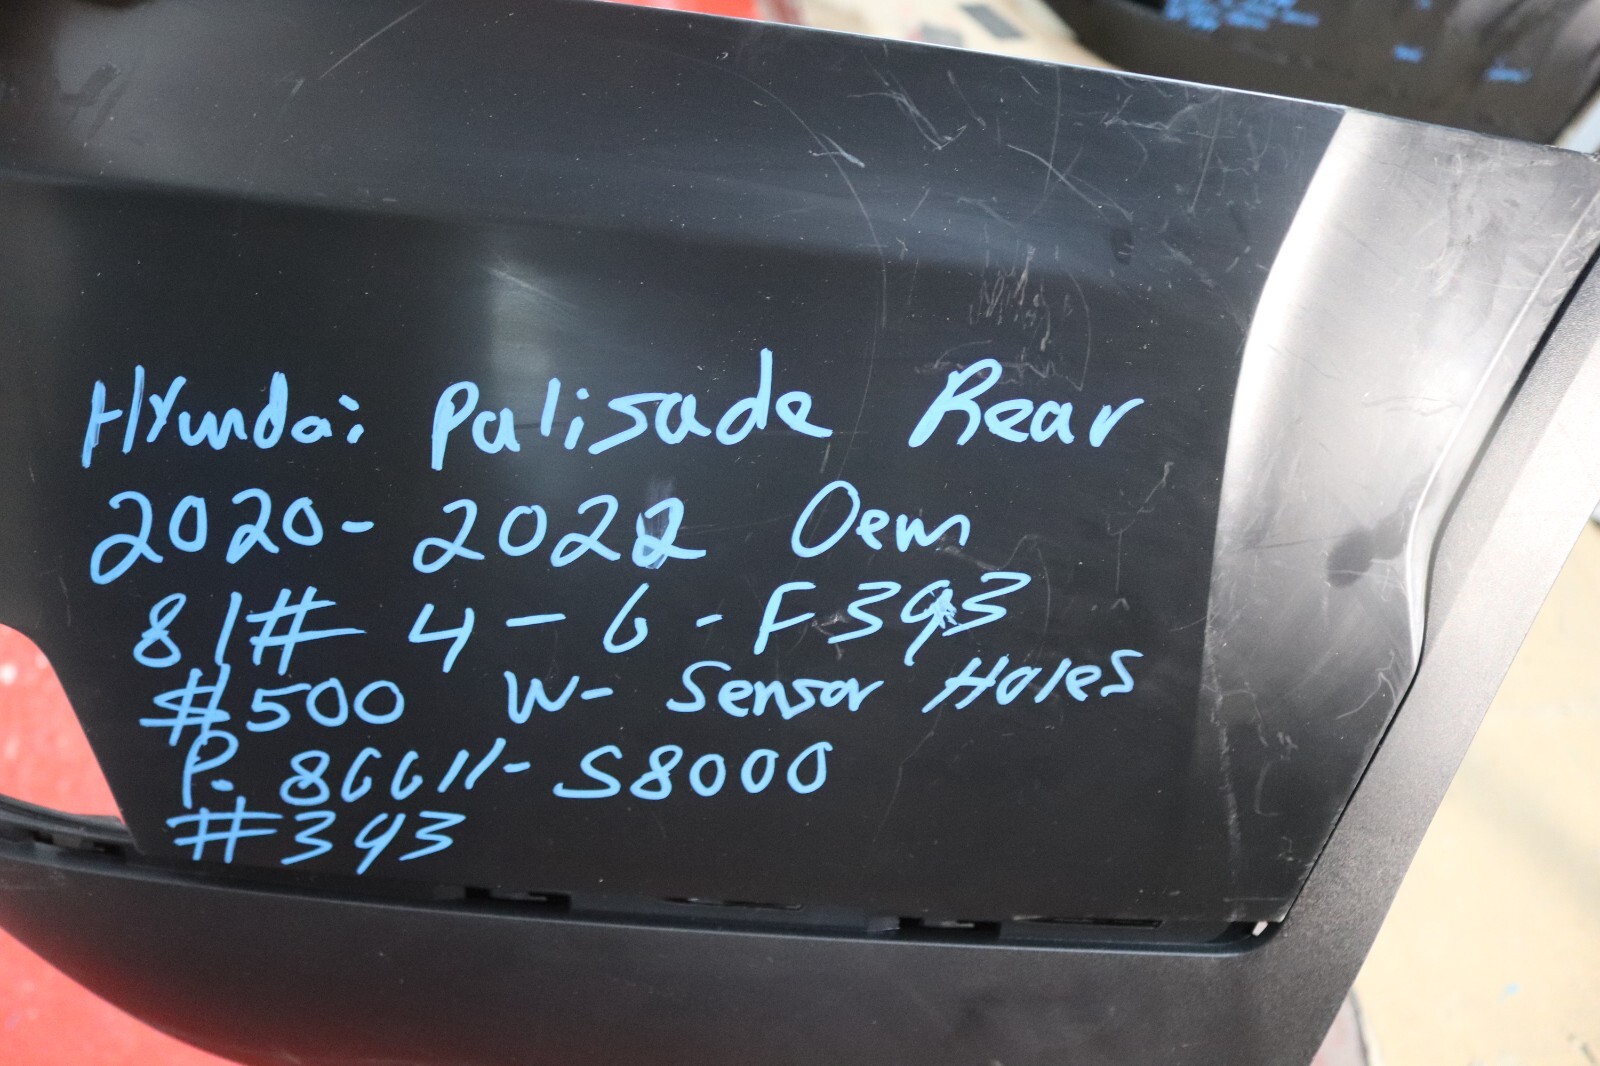 Hyundai Palisade Rear
2020-2022 Oem
81# 4-6-F393
#500 W- Sensor Holes
P. 86611-S8000
#393